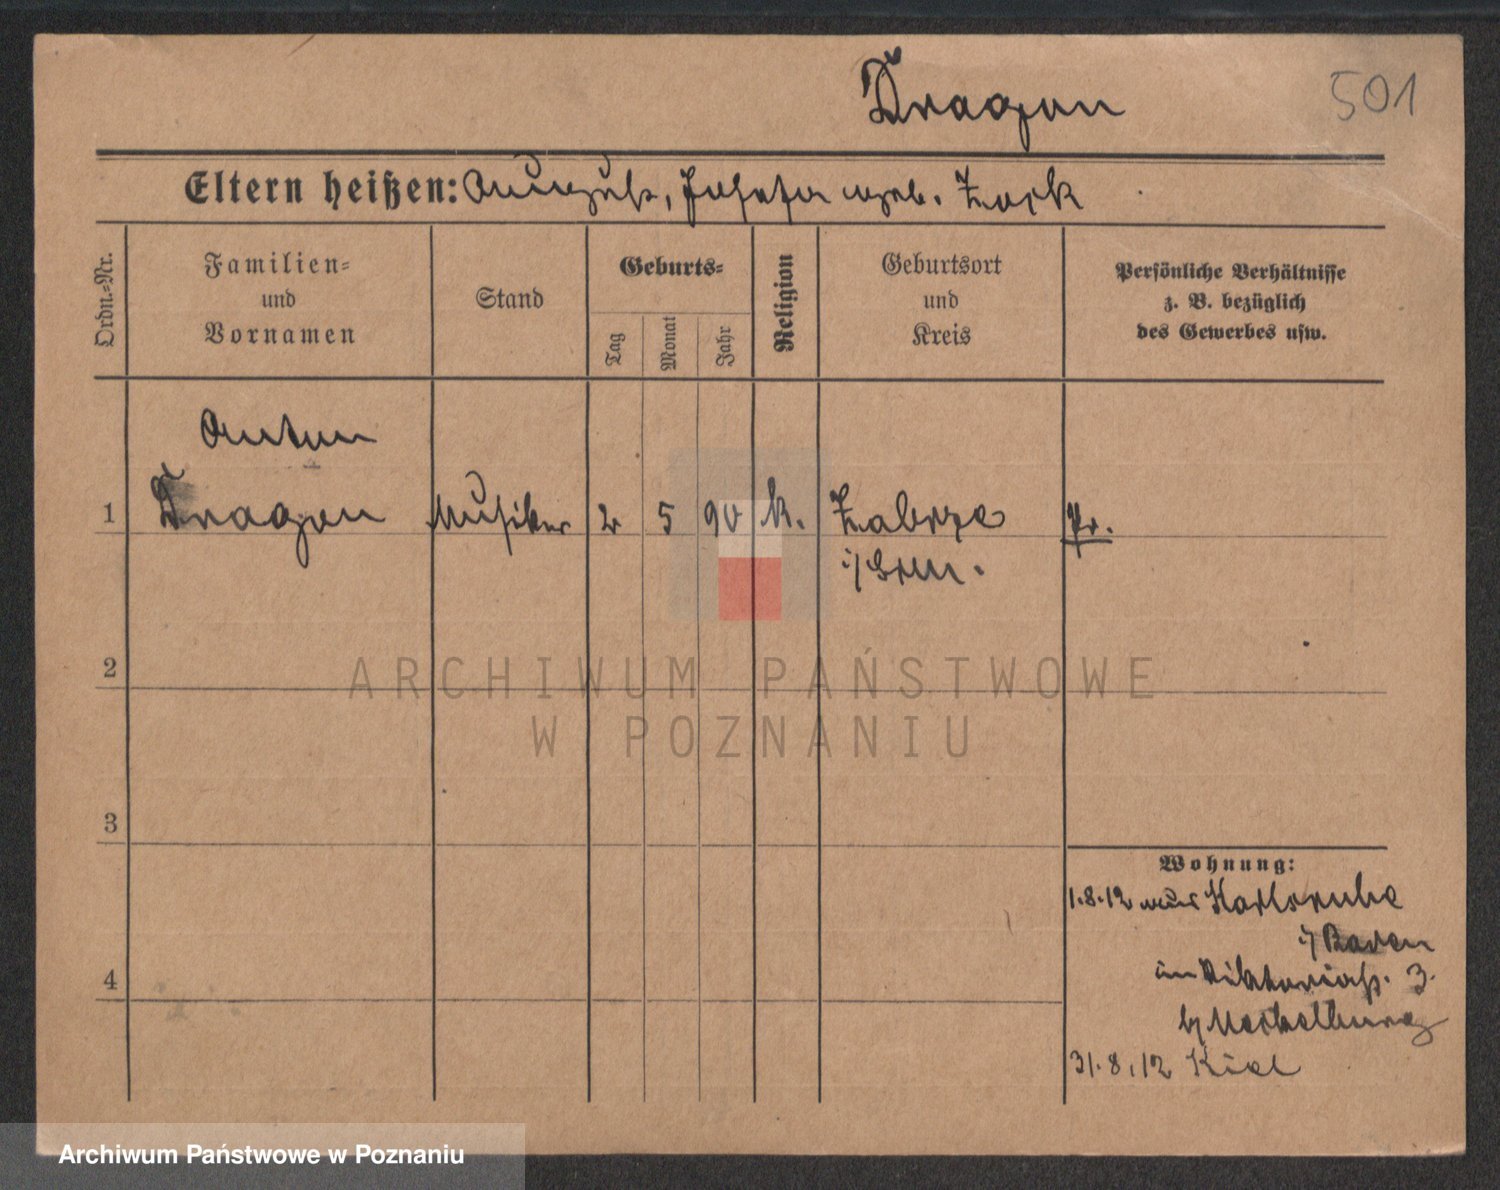 Dragon
501
Eltern heißen: August, Josefa geb. Zock
Ordn.-Nr.
Familien-
und
Vornamen
Stand
Geburts-
Tag
Monat
Jahr
Religion
Geburtsort
und
Kreis
Persönliche Verhältnisse
z. B. bezüglich
des Gewerbes usw.
Anton
1 Dragon Musiker 2 5 90 k. Zabrze Pr.
2
3
4
Wohnung:
1.8.12 aus Karlsruhe
i/Baden
in Viktoriastr. 3.
b/
31.8.12 Kiel
ARCHIWUM PAŃSTWOWE
W POZNANIU
Archiwum Państwowe w Poznaniu